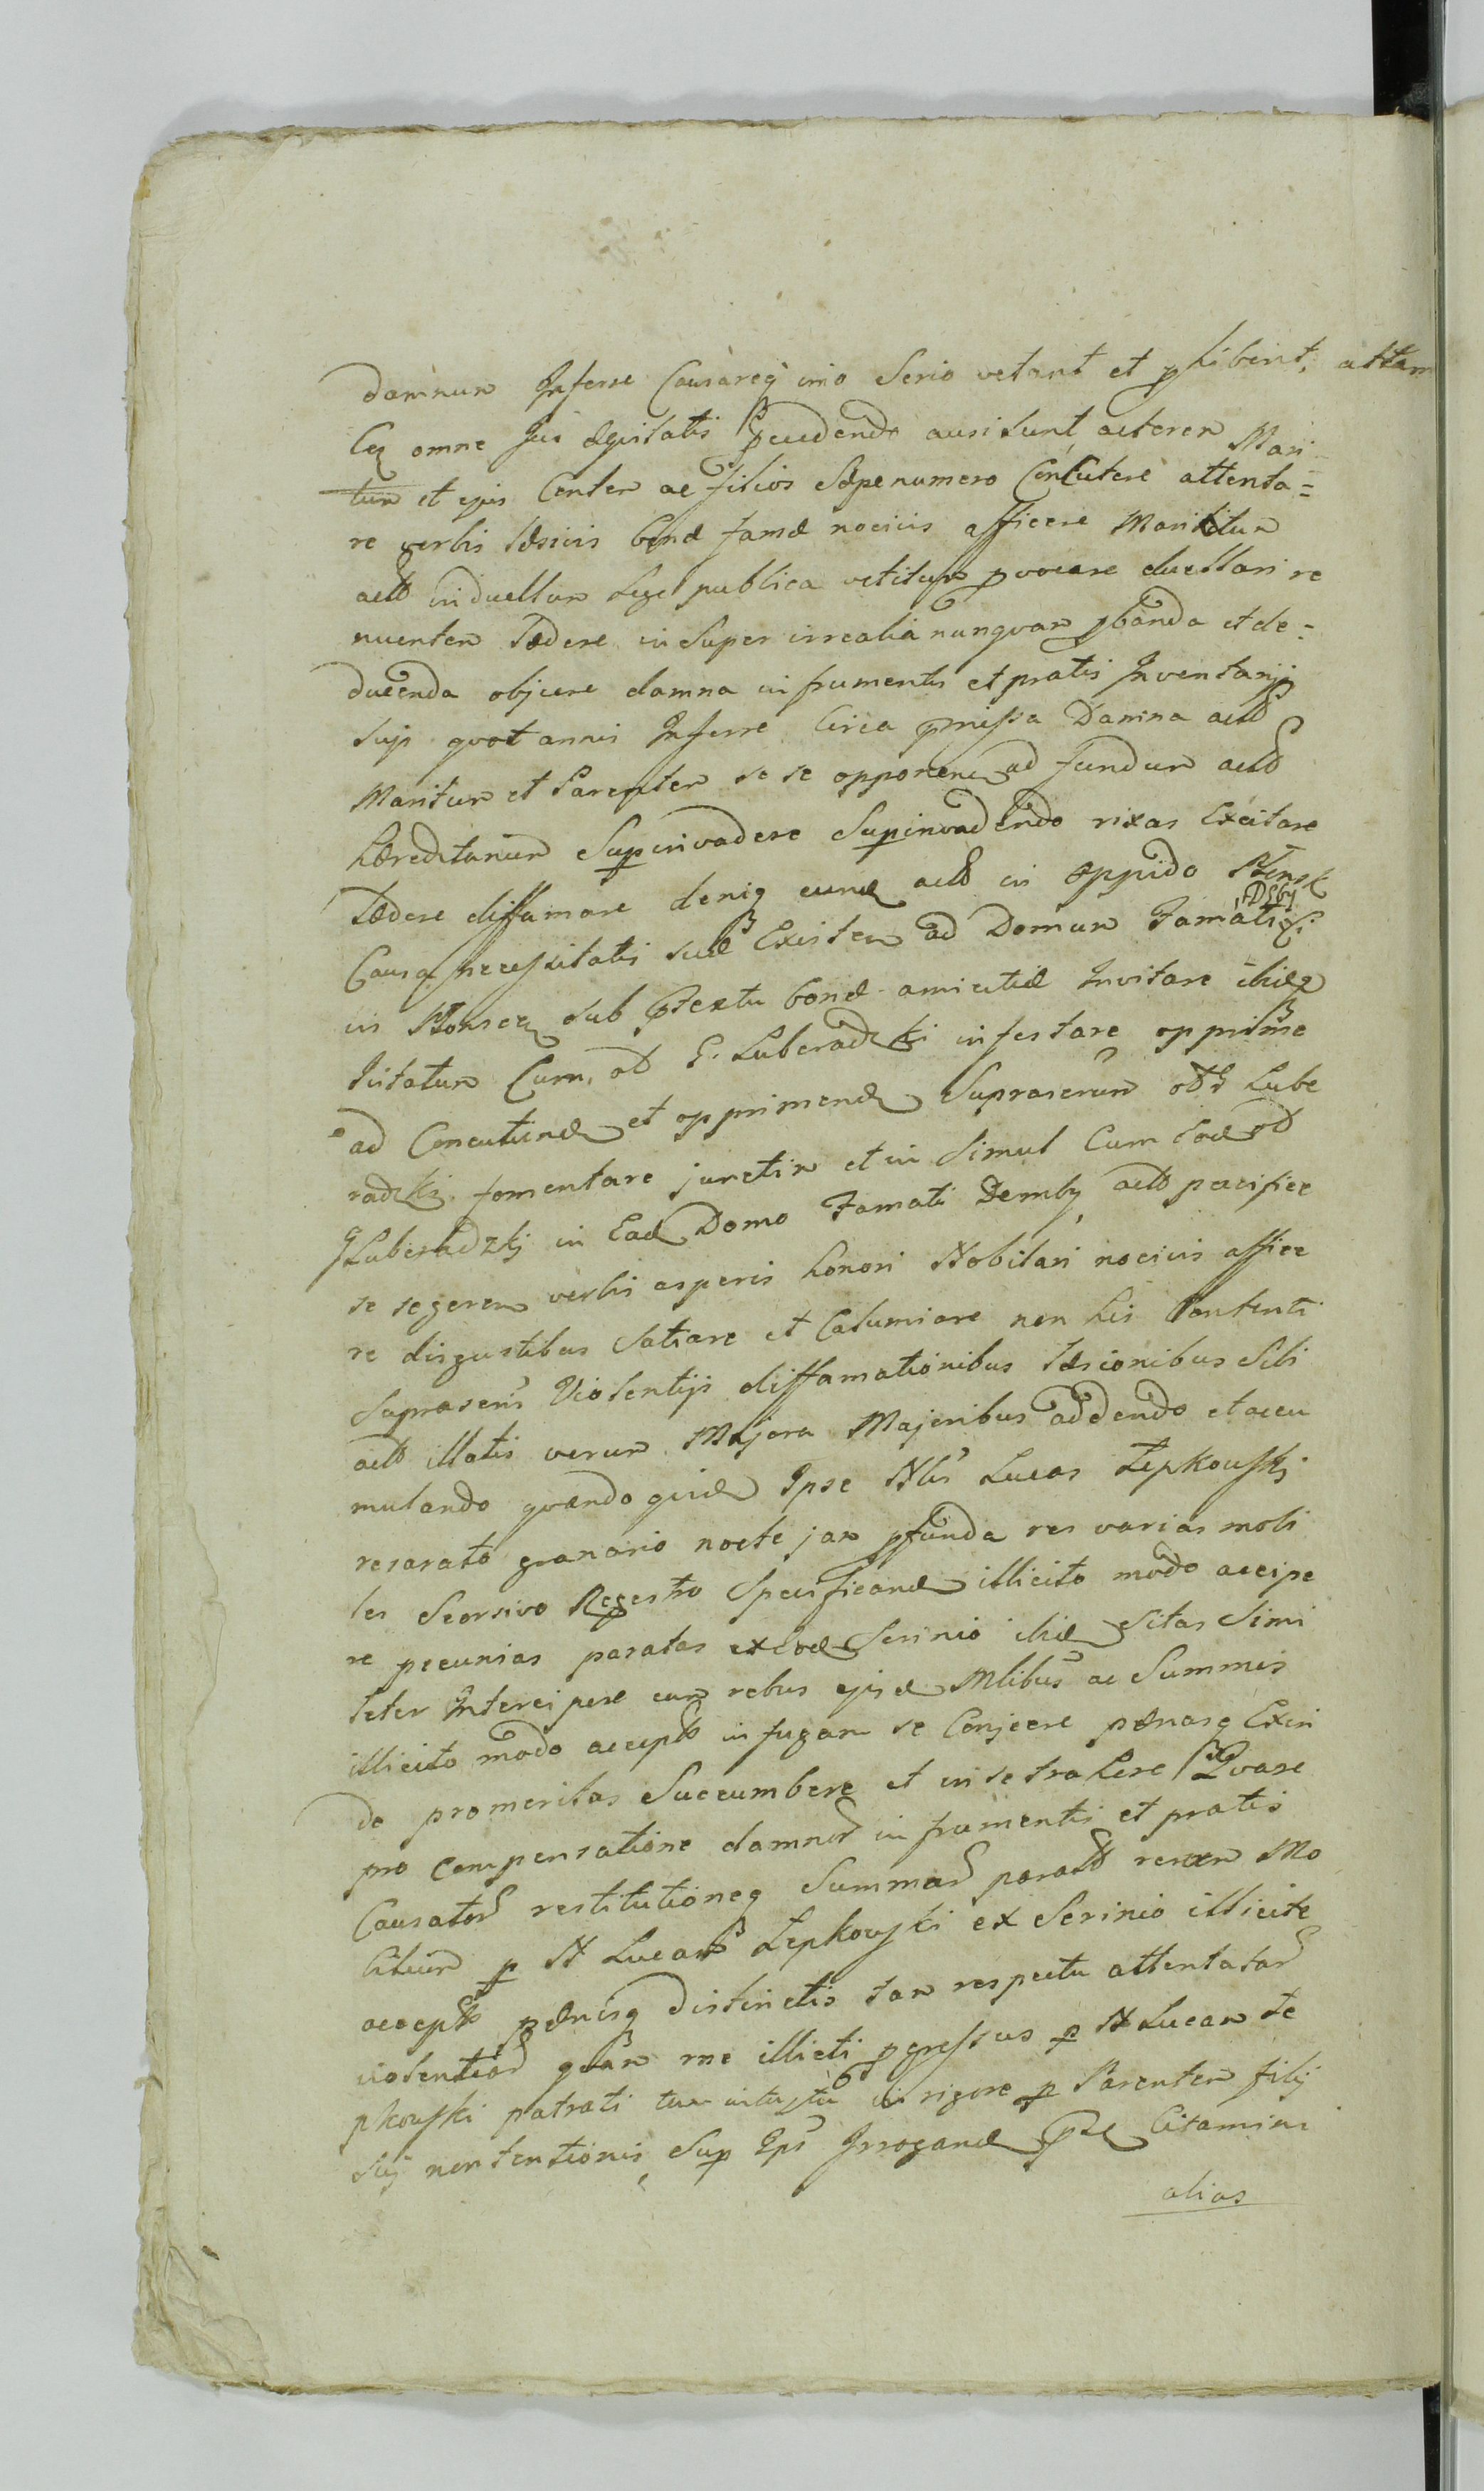 damnum Inferre Causareq imo Serio vetant et phibent, attam
omne Jus æquitatis ausi sunt actorem Mari
tum et ejus Conten ac filios Sæpenumero Concutere attenta=
re verbis læsivis bonæ famæ nocivis afficere Maritum
in duellum Lege publica vetitum pvocare duellari re
nuentem Lædere insuper irrealia nunquam pbanda et de=
ducenda objicere damna in frumentis et pratis Inventarijq
suis quotannis Inferre Circa pmissa Damna
Maritum et Parentem se se opponen ad fundum
hæreditarium Supinvadere Supinvadendo rixas Excitare
Lædere diffamare deniq eund in oppido
Causa necessitatis suæ Existen ad Domum Famati
in sub ptextu bonæ amicitiæ Invitare ibidq
Invitatum Cum G. Luberadzki infestare opprime
ad Concutiend et opprimend Suprascrum Lube
radzki fomentare junctim et in Simul Cum
Luberadzkj in Ead Domo Famati Demby pacifice
se geren verbis asperis honori Nobilari nocivis affice
re disgustibus Satiare et Calumiare non his Contenti
Suprascris Violentijs diffamationibus læsionibus Sibi
illatis verum Majora Majoribus addendo et accu
mulando quandoquid Ipse Nlis Lucas Lepkowski
resarato granario nocte jam pfunda res varias mobi
les Seorsivo Regestro Specificand illicito modo accipe
re pecunias paratas ex Scrinio ibid Sitas Simi
liter Intercipere cum rebus ejusd Mlibus ac Summis
illicito modo accept in fugam se Conjicere pænasq Exin
de promeritas Succumbere et in se trahere Quare
pro compensatione damnor in frumentis et pratis
Causator restitutioneq Summar parat rerum Mo
bilium p N Lucam Lepkowski ex Scrinio illicite
accept pænisq distinctis tam respectu attentatar
violentiar quam illiciti pgressus p N Lucam Le
pkowski patrati tum intuitu in rigore p Parentem filij
sui non tentionis Sup Ipsis Irrogand Citamini
alias